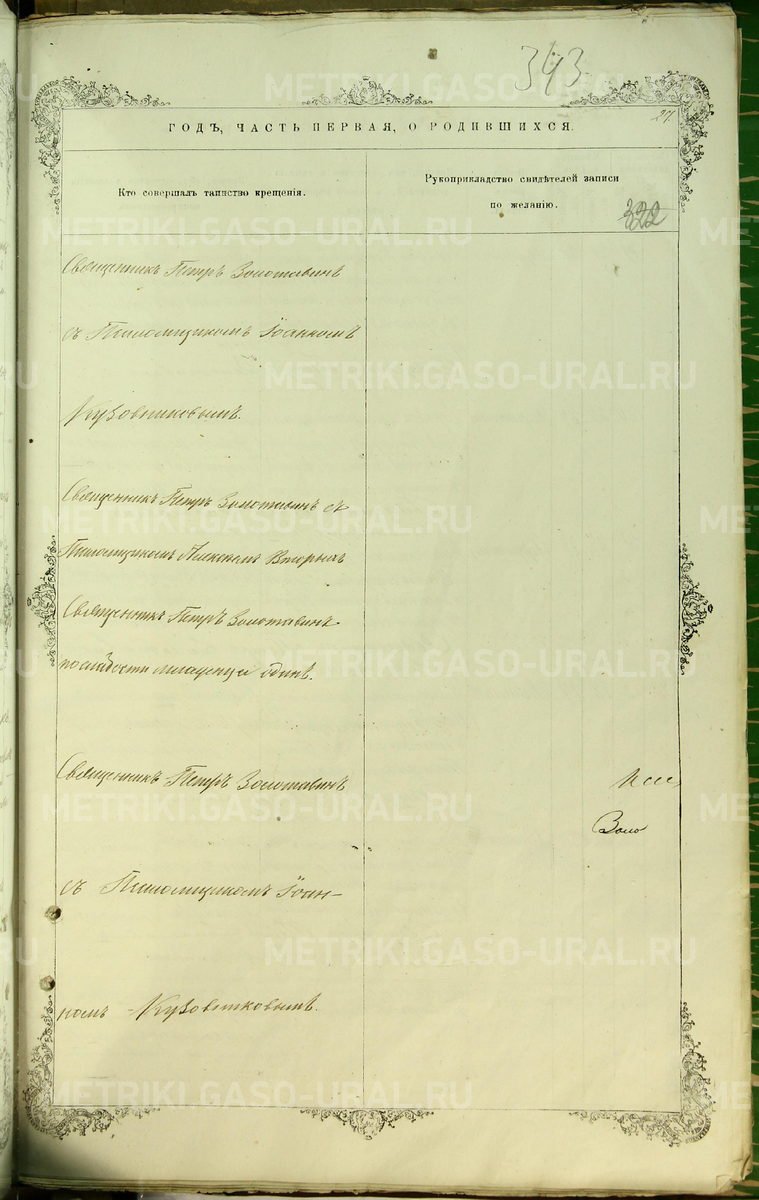 343
27.
ГОДЪ, ЧАСТЬ ПЕРВАЯ, О РОДИВШИХСЯ.
Кто совершалъ таинство крещенія.
Рукоприкладство свидѣтелей записи
по желанію.
322
Священникъ Петръ Золотавинъ
съ Псаломщикомъ Іоанномъ
Кузовниковымъ.
Священникъ Петръ Золотавинъ съ
Псаломщикомъ Вторыхъ
Священникъ Петръ Золотавинъ
по слабости младенца одинъ.
Священникъ Петръ Золотавинъ
Золо
съ Псаломщикомъ Іоан-
номъ Кузовниковымъ.
METRIKI.GASO-URAL.RU